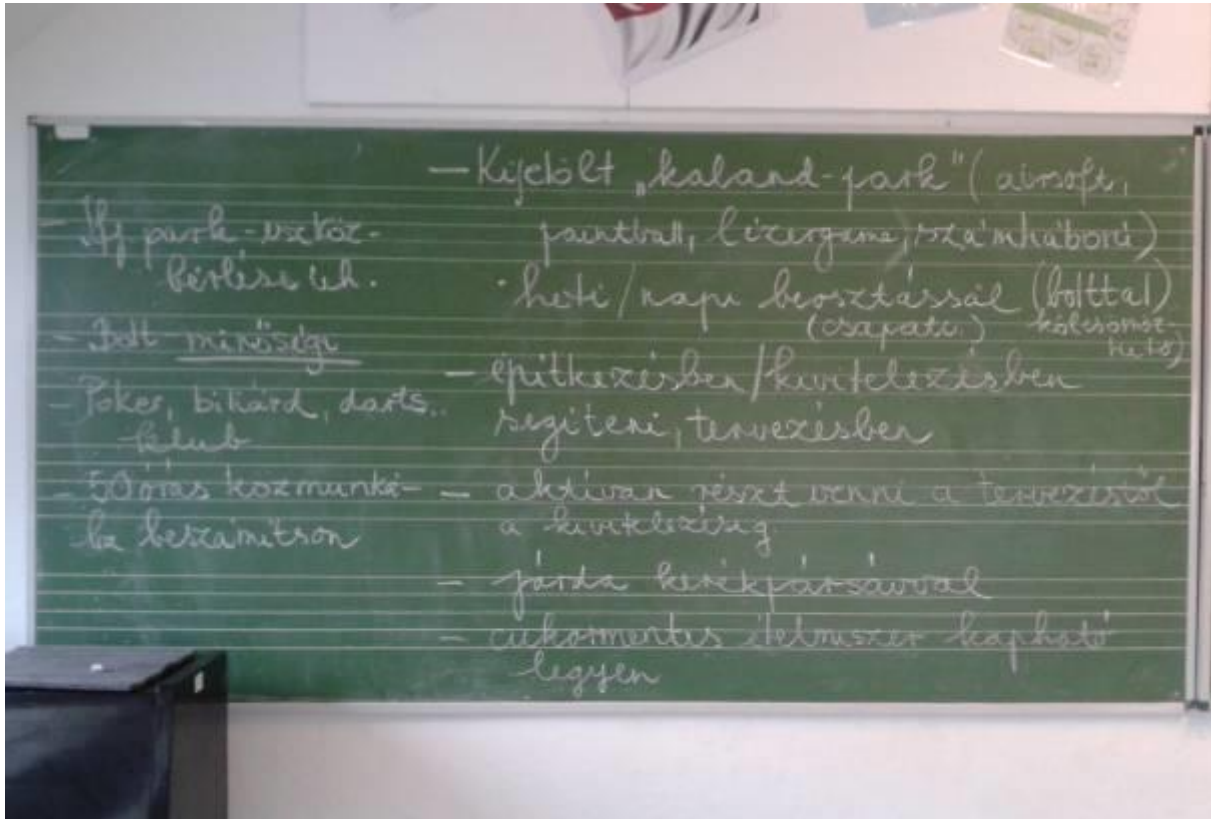 - Ifj park-eszköz-
bérlése
- Bolt minőségi
- Póker, biliárd, darts..
klub
- 50 órás közmunká-
ba beszámítson
- Kijelölt „kaland-park" (airsoft,
paintball, lézergame, számháború)
• heti/napi beosztással (bolttal)
(csapatc.) kölcsönöz-
hető)
- építkezésben/kivitelezésben
segíteni, tervezésben
- aktívan részt venni a tervezéstől
a kivitelezésig
- járda kerékpársávval
- cukormentes élelmiszer kapható
legyen